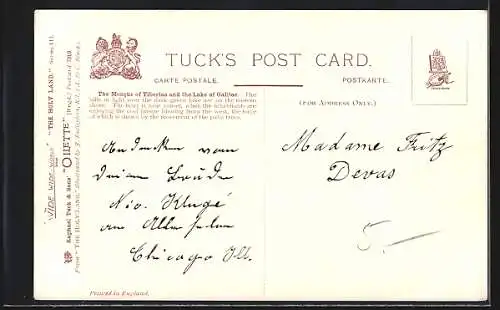 TUCK'S POST CARD.
CARTE POSTALE. POSTKARTE.
(FOR ADDRESS ONLY.)
The Mosque of Tiberias and the Lake of Galilee. The
hills in light near the dark green lake are on the eastern
shore. The hour is near sunset, when the inhabitants are
enjoying the cool breeze blowing from the west, the force
of which is shown by the movement of the palm trees.
"WIDE-WIDE-WORLD" "THE HOLY LAND." Series III.
Raphael Tuck & Sons' "OILETTE" [Regd.] Postcard 7310.
From "THE HOLY LAND," illustrated by J. Fulleylove, R.I. (A. & C. Black).
Andenken vom
deinen Bruder
Nic. Klugé
an
Chicago Ill.
Madame Fritz
Devas
5
Printed in England.